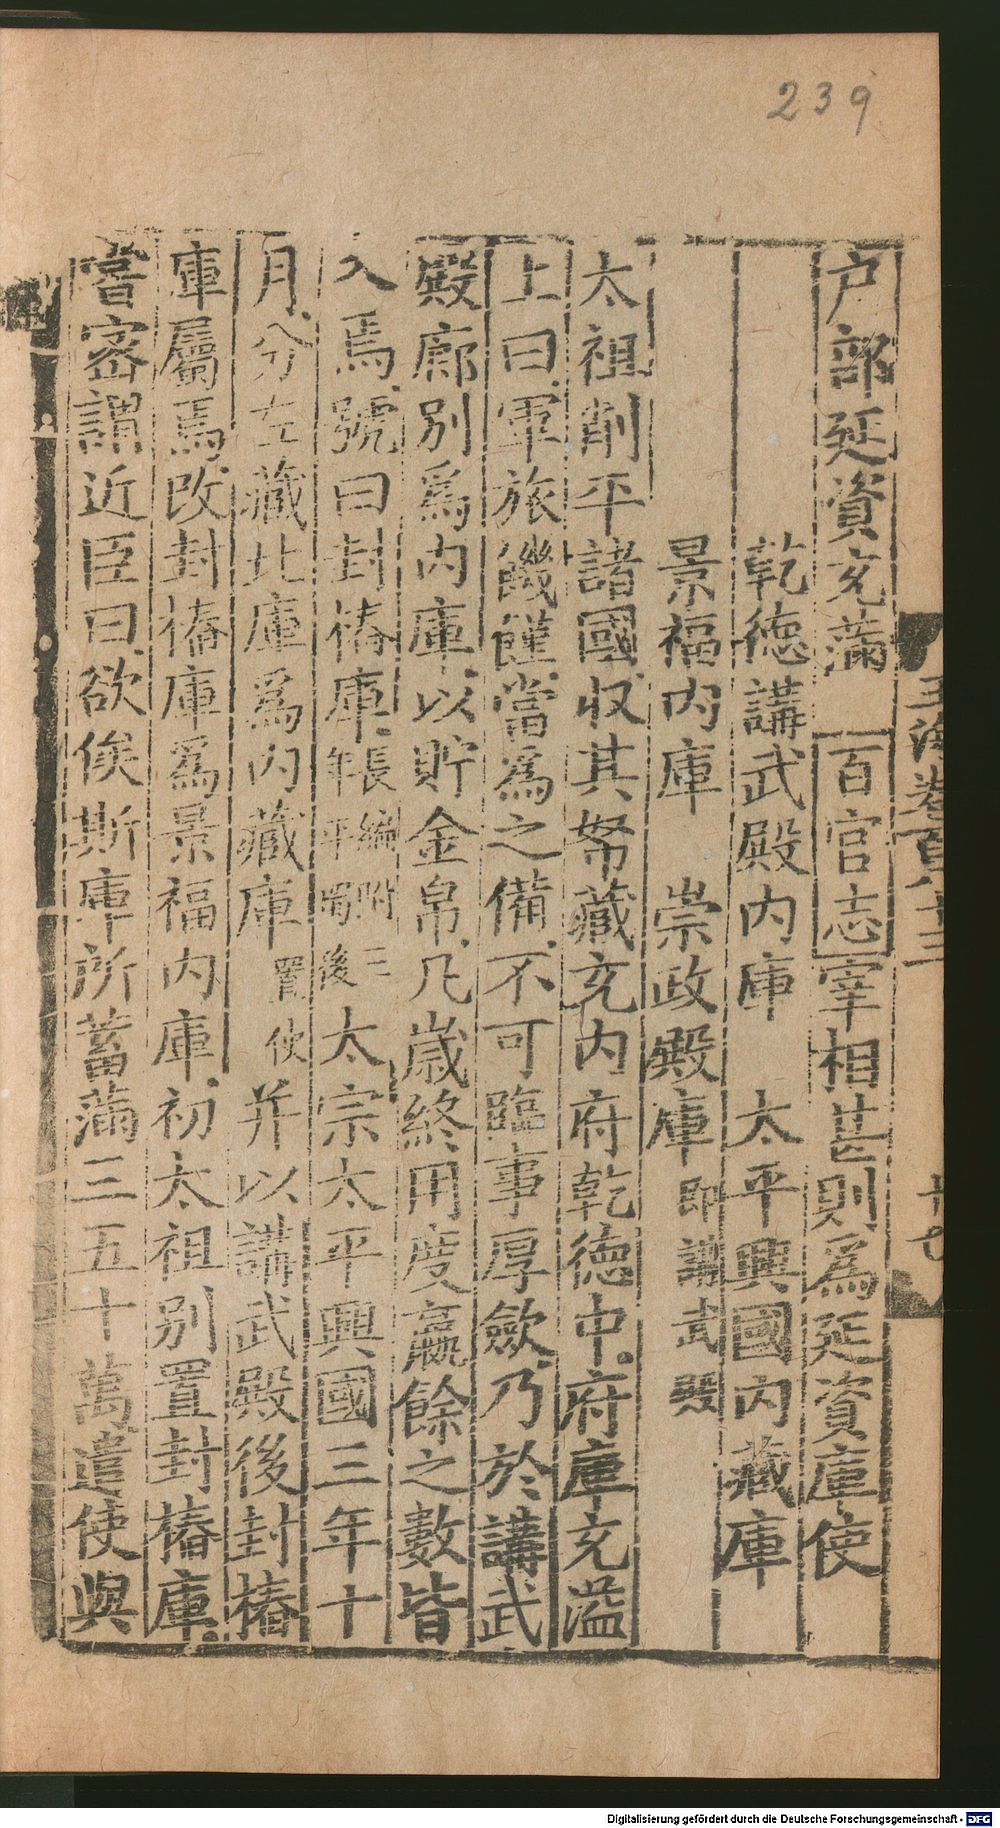 239
玉海卷百八十三
十七
户部延資充滿　百官志宰相甚則爲延資庫使
乾德講武殿内庫　太平興國内藏庫
景福内庫　崇政殿庫即講武殿
太祖削平諸國收其帑藏充内府乾德中府庫充溢
上曰軍旅饑饉當爲之備不可臨事厚斂乃於講武
殿廊别爲内庫以貯金帛凡歳終用度贏餘之數皆
入焉號曰封樁庫長編附三年平蜀後太宗太平興國三年十
月分左藏北庫爲内藏庫置使并以講武殿後封樁
庫屬焉改封樁庫爲景福内庫初太祖别置封樁庫
嘗密謂近臣曰欲俟斯庫所蓄滿三五十萬遣使與
Digitalisierung gefördert durch die Deutsche Forschungsgemeinschaft - DFG